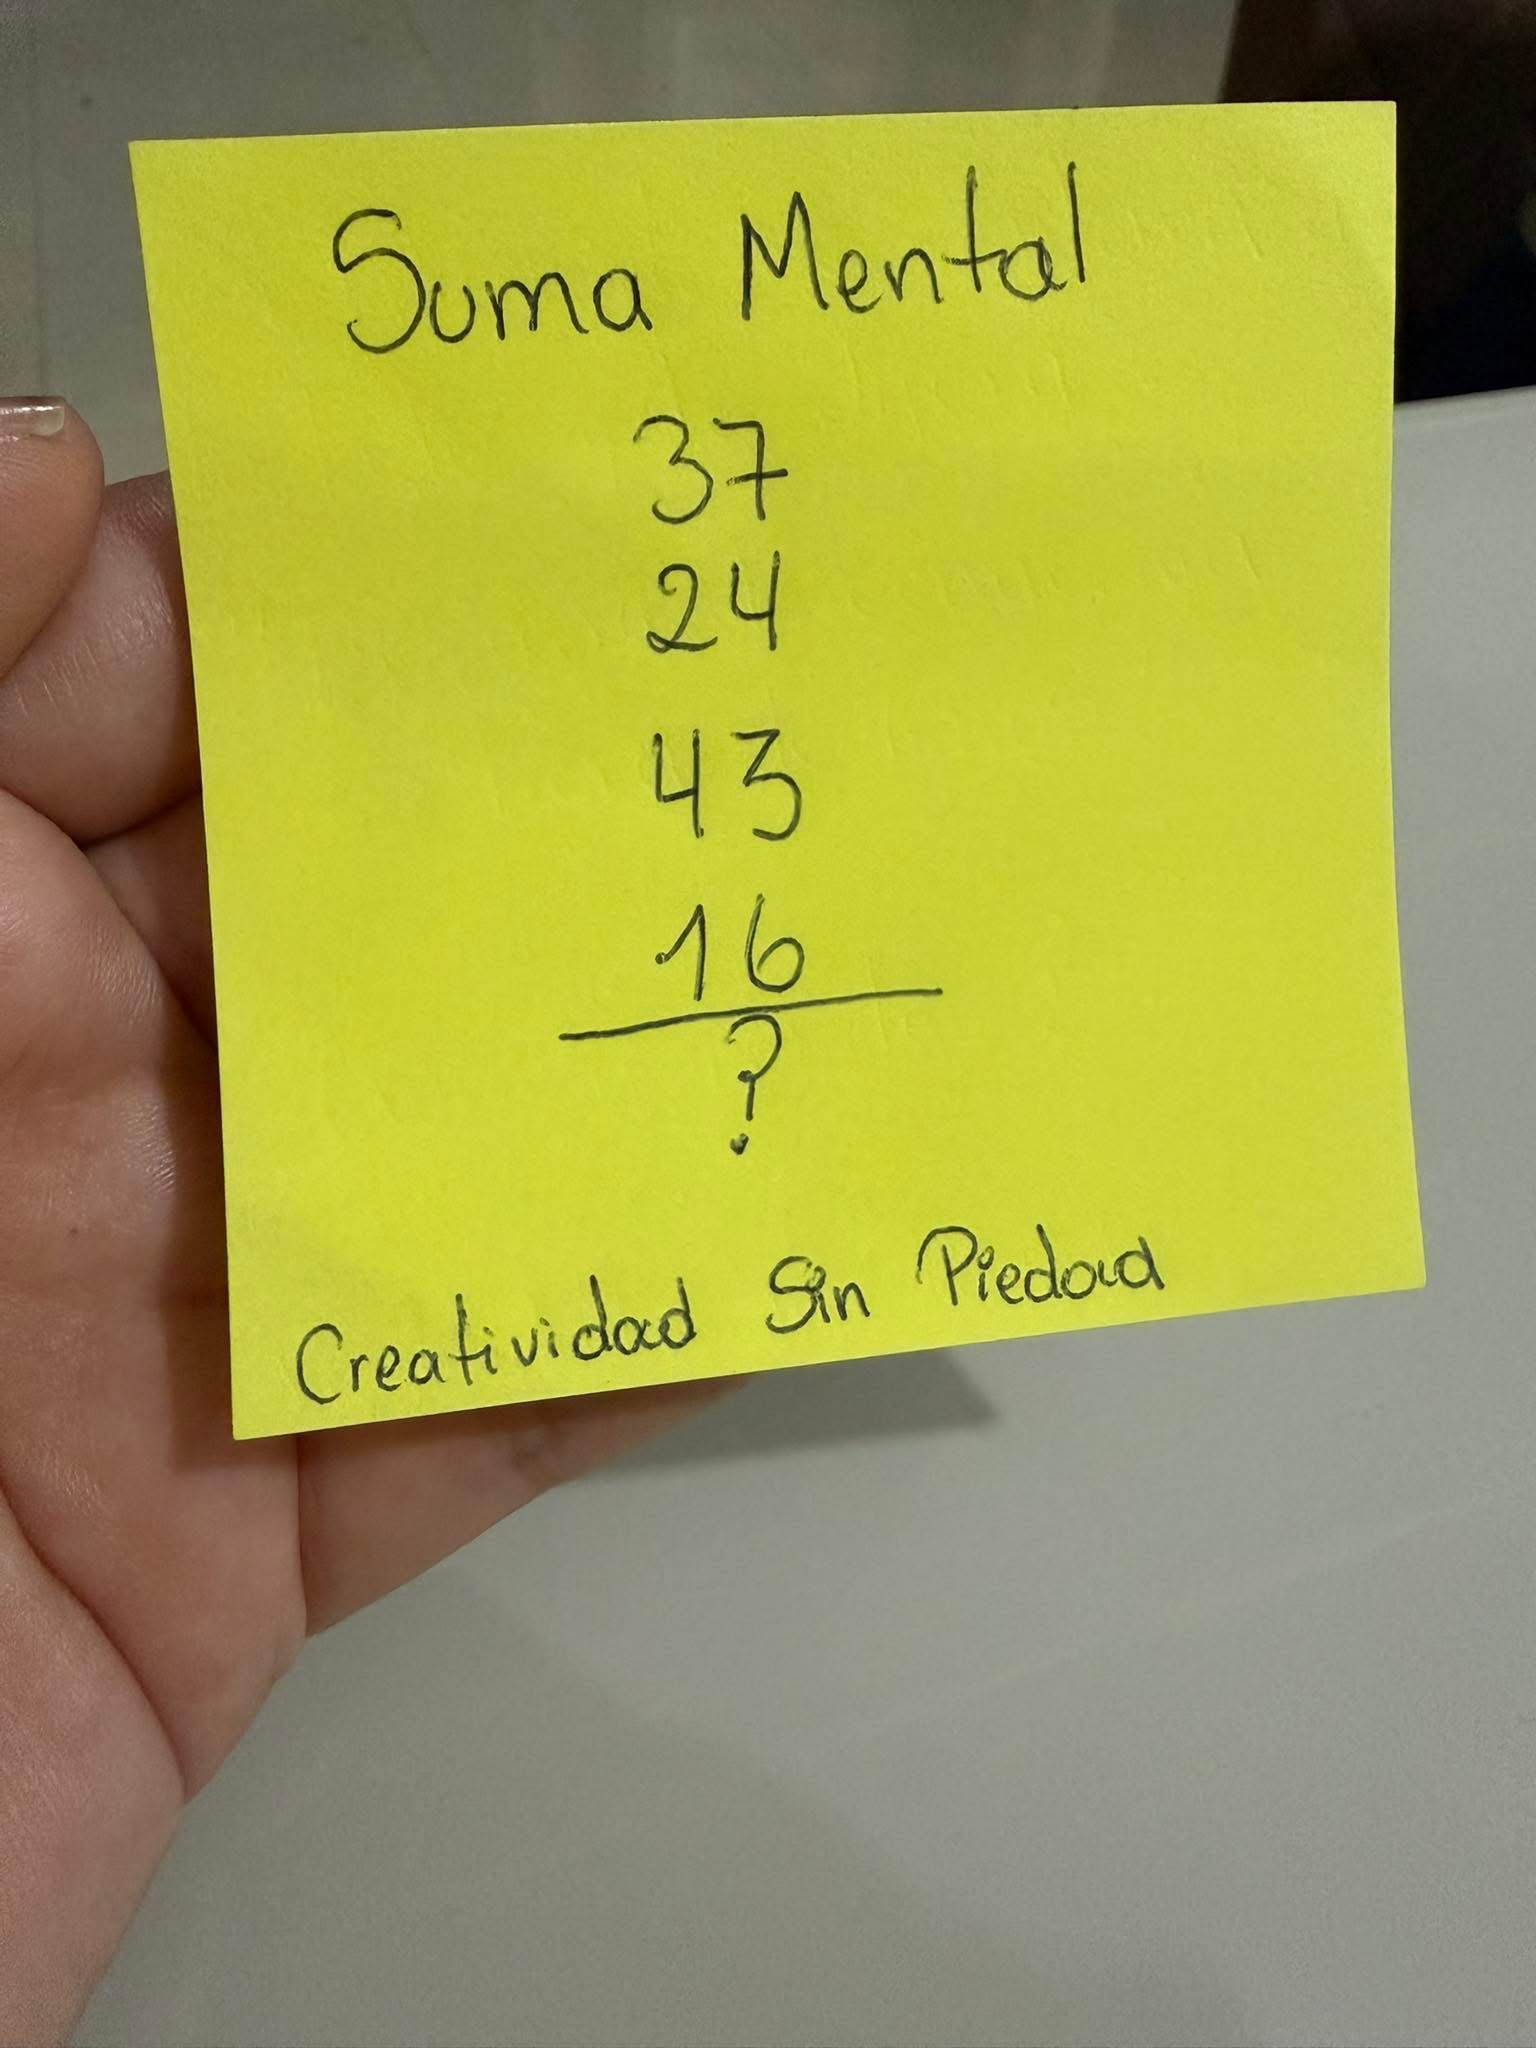 Suma Mental
37
24
43
16
?
Creatividad Sin Piedad